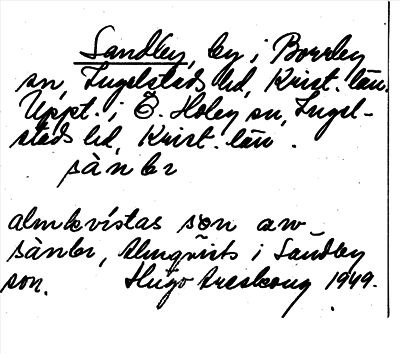 Sandby, by i Borrby
sn, Ingelstads hd, Krist. län.
Uppt. i Ö. Hoby sn, Ingel-
stads hd, Krist. län.
sànbr
almkvistas son aw
sànbr, Almqvists i Sandby
son. Hugo Areskoug 1949.